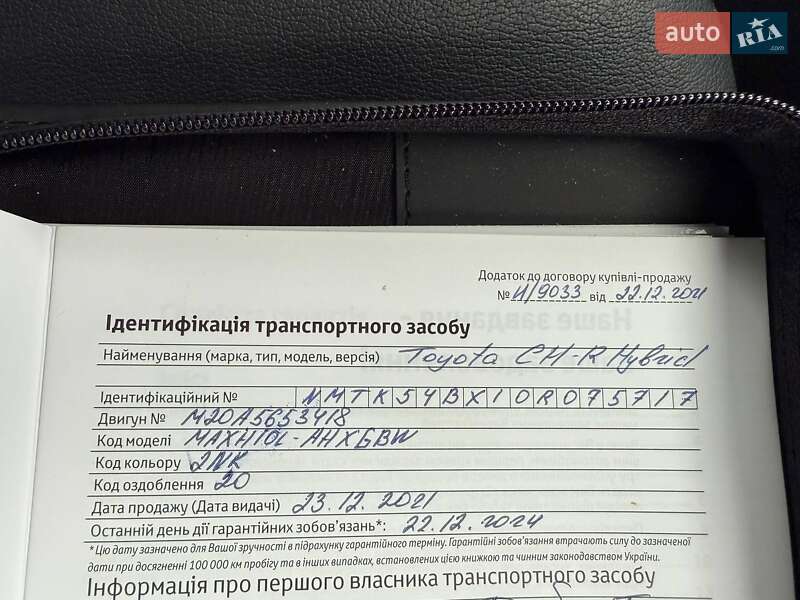 auto RIA .com
Додаток до договору купівлі-продажу
№ И/9033 від 22.12.2021
Ідентифікація транспортного засобу
Найменування (марка, тип, модель, версія) Toyota CH-R Hybrid
Ідентифікаційний № NMTK54BX10R075717
Двигун № M20A5653418
Код моделі MAXH10L-AHXGBW
Код кольору 2NK
Код оздоблення 20
Дата продажу (Дата видачі) 23.12.2021
Останній день дії гарантійних зобов'язань*: 22.12.2024
* Цю дату зазначено для Вашої зручності в підрахунку гарантійного терміну. Гарантійні зобов'язання втрачають силу до зазначеної
дати при досягненні 100 000 км пробігу та в інших випадках, встановлених цією книжкою та чинним законодавством України.
Інформація про першого власника транспортного засобу